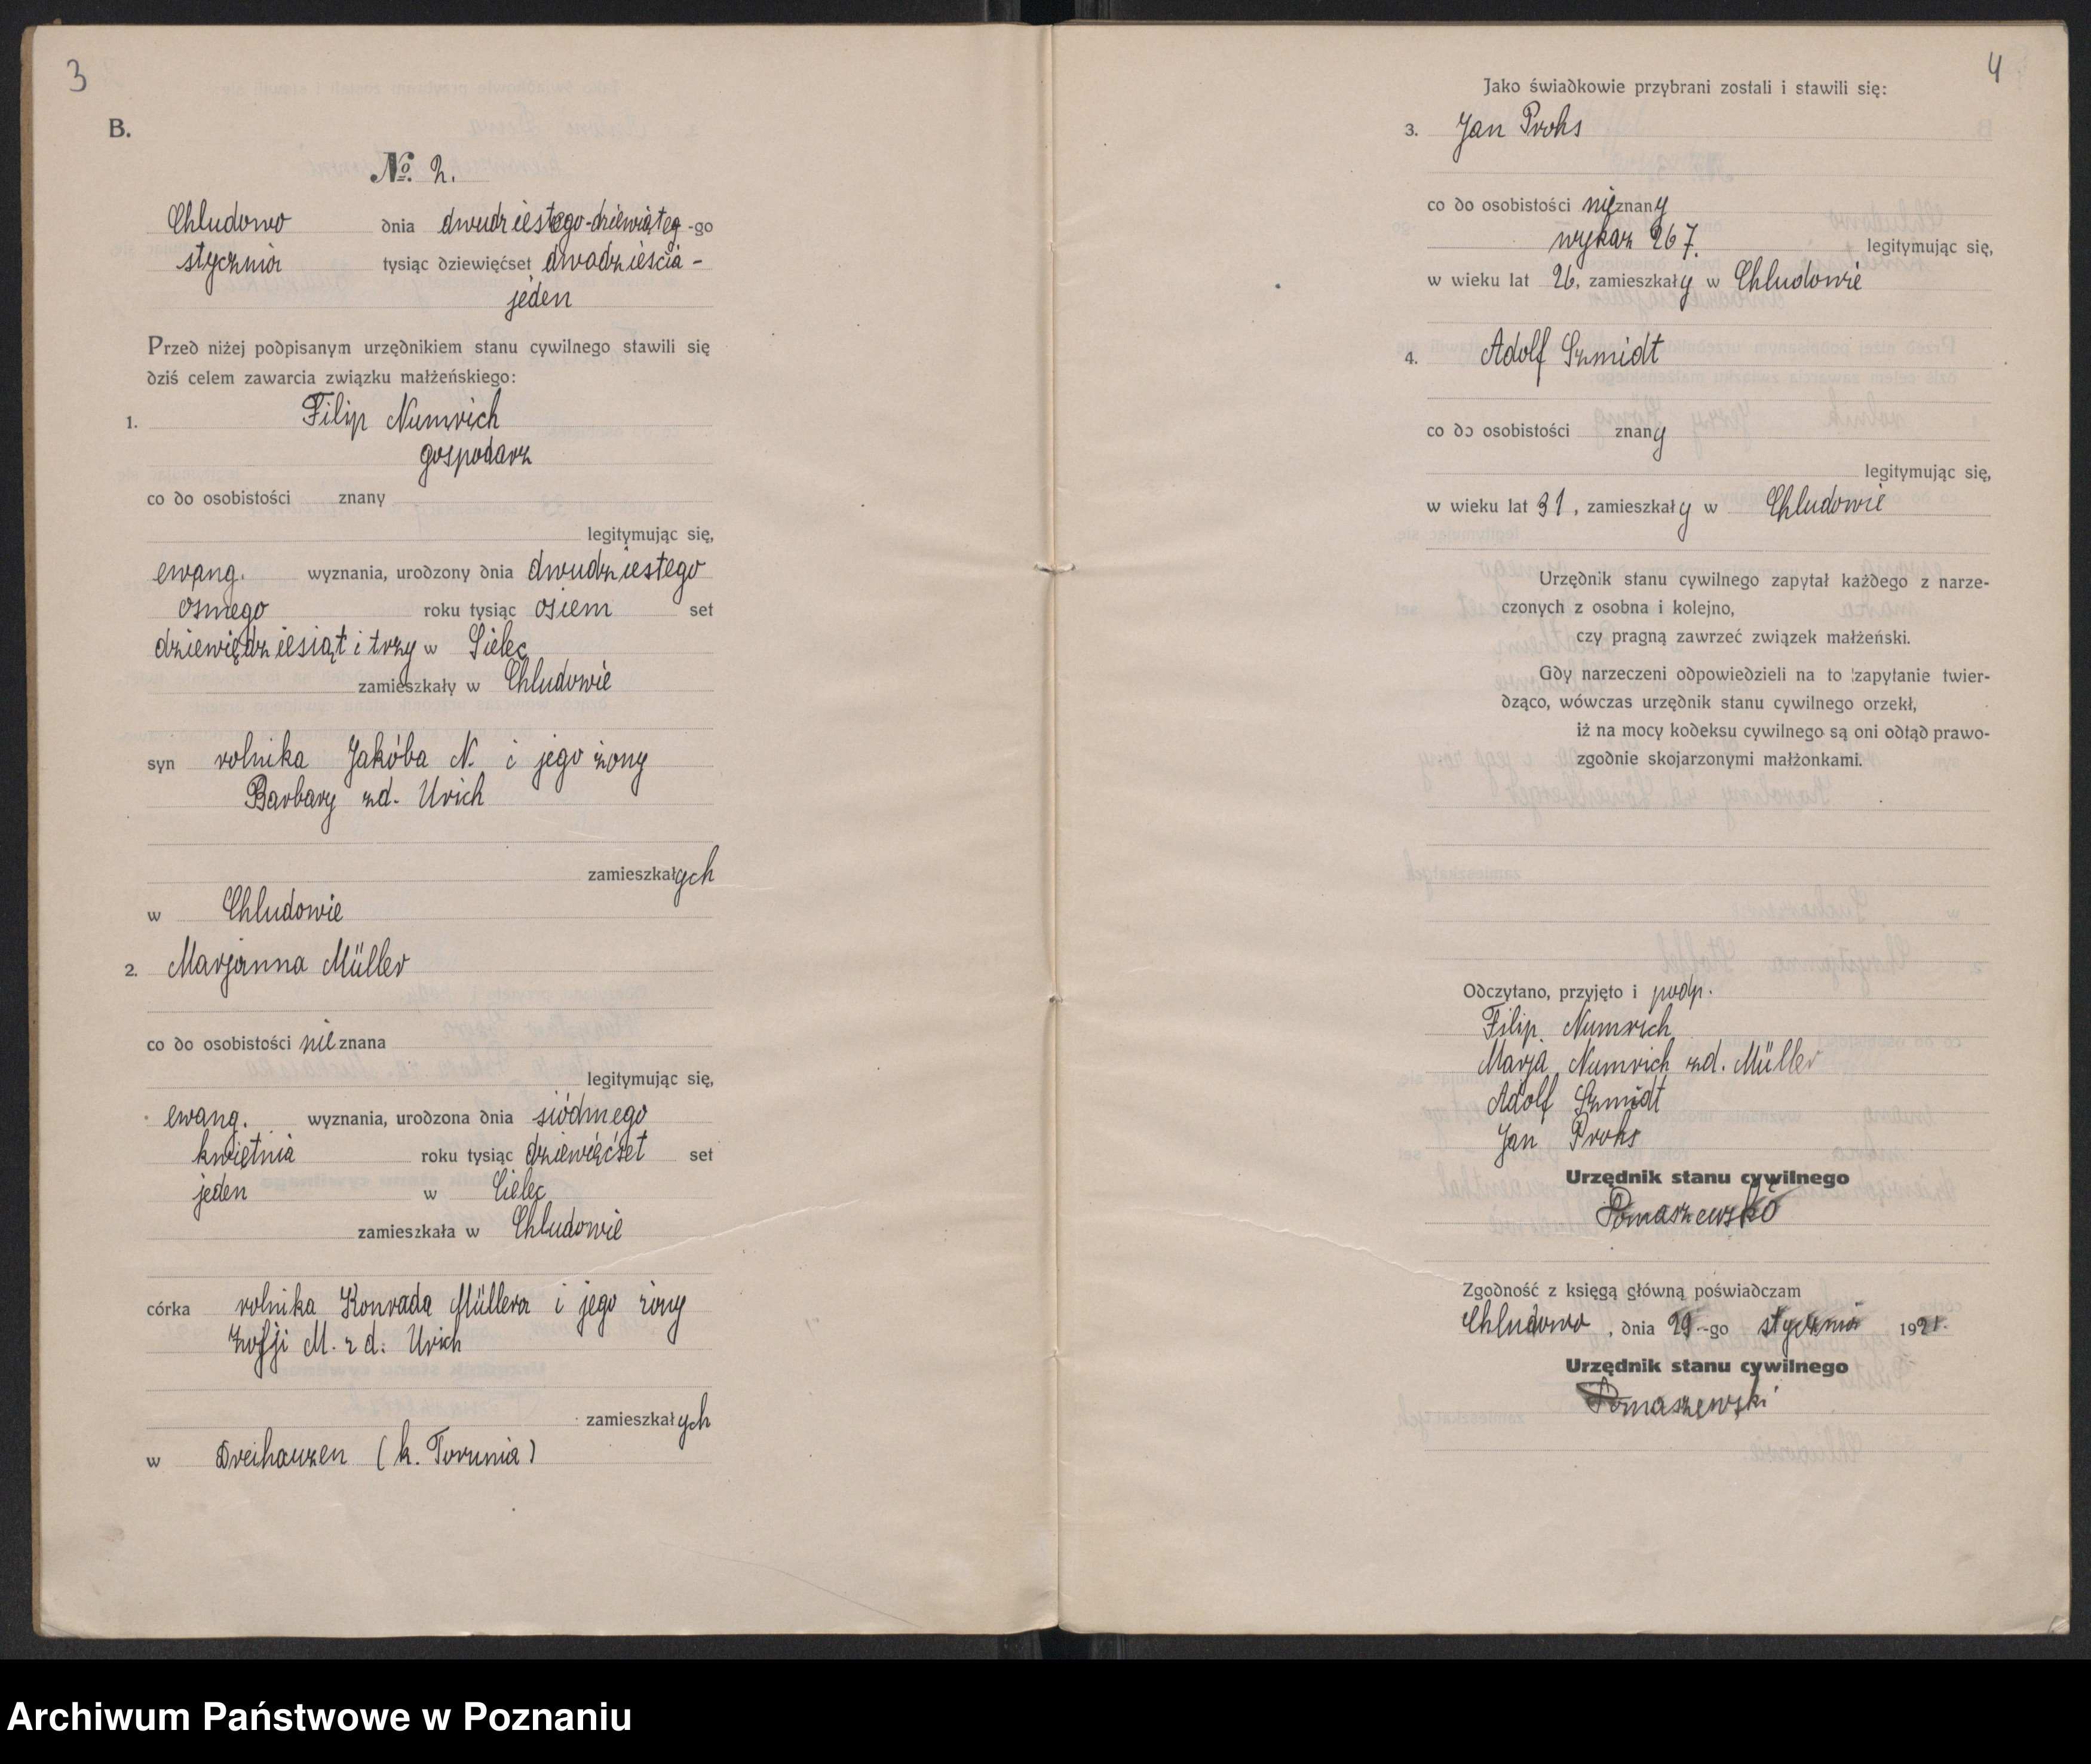 3
B.
No. 2.
Chludowo dnia dwudziestego-dziewiąteg -go
stycznia tysiąc dziewięćset dwadzieścia -
jeden
Przed niżej podpisanym urzędnikiem stanu cywilnego stawili się
dziś celem zawarcia związku małżeńskiego:
1. Filip Numrich
gospodarz
co do osobistości znany
legitymując się,
ewang. wyznania, urodzony dnia dwudziestego
ósmego roku tysiąc osiem set
dziewiędziesiąt i trzy w Sielec
zamieszkały w Chludowie
syn rolnika Jakóba N. i jego żony
Barbary zd. Urich
zamieszkałych
w Chludowie
2. Marjanna Müller
co do osobistości nieznana
legitymując się,
ewang. wyznania, urodzona dnia siódmego
kwietnia roku tysiąc dziewięćset set
jeden w Sielec
zamieszkała w Chludowie
córka rolnika Konrada Müllera i jego żony
Zofji M. zd: Urich
zamieszkałych
w Dreihauzen (k. Torunia)
4
Jako świadkowie przybrani zostali i stawili się:
3. Jan Prohs
co do osobistości nieznany
wykaz 267. legitymując się,
w wieku lat 26, zamieszkały w Chludowie
4. Adolf Szmidt
co do osobistości znany
legitymując się,
w wieku lat 31, zamieszkały w Chludowie
Urzędnik stanu cywilnego zapytał każdego z narze-
czonych z osobna i kolejno,
czy pragną zawrzeć związek małżeński.
Gdy narzeczeni odpowiedzieli na to zapytanie twier-
dząco, wówczas urzędnik stanu cywilnego orzekł,
iż na mocy kodeksu cywilnego są oni odtąd prawo-
zgodnie skojarzonymi małżonkami.
Odczytano, przyjęto i podp.
Filip Numrich
Marja Numrich zd. Müller
Adolf Szmidt
Jan Prohs
Urzędnik stanu cywilnego
Pomaszewski
Zgodność z księgą główną poświadczam
Chludowo, dnia 29-go stycznia 1921.
Urzędnik stanu cywilnego
Pomaszewski
Archiwum Państwowe w Poznaniu